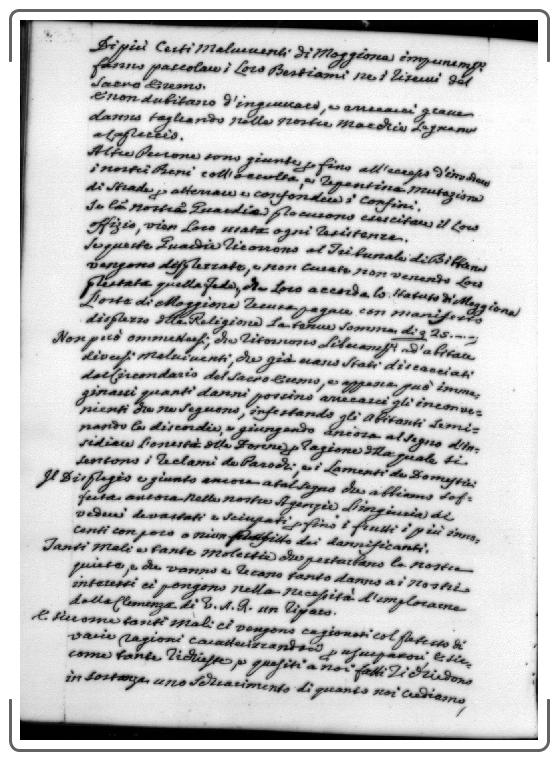 Di più Certi Malviventi di Moggiona impunemte
fanno pascolare i Loro Bestiami ne i Tereni del
Sacro Eremo.
E non dubitano d'ingiuriarci, e arrecarci grave
danno tagliando nelle nostre Macchie Legname
a Capriccio.
Altre Persone sono giunte p fino all'eccesso d'invadere
i nostri Beni coll'occulta, e repentina mutazione
di Strade p atterrare e confondere i Confini.
Se la nostra Guardia procurono esercitare il Loro
Offizio, vien Loro usata ogni resistenza.
Se queste Guardie ricorrono al Tribunale di Bibbiena
vengono disprezzate, e non curate non venendo Loro
prestata quella fede, che Loro accorda lo Statuto di Moggiona
L'oste di Moggiona recusa pagare con manifesto
disprezzo della Religione la tenue somma di 25
Non può ommettersi, che ritornono Liberamte ad abitare
diversi Malviventi, che già erano stati discacciati
dal Circondario del Sacro Eremo, e appena può imma-
ginarsi quanti danni possino arrecarci gli inconve-
nienti che ne seguono, infestando gli Abitanti semi-
nando le discordie, e giungendo ancora al segno d'in-
sidiare l'onestà delle Donne p ragione della quale si
sentono i reclami de Parochi, e i Lamenti de Domestici
Il Dispregio è giunto ancora a tal segno che abbiamo sof-
ferta ancora nelle nostre Agenzie l'ingiuria di
vederci devastati e sciupati p fino i frutti i più inno-
centi con poco o niun profitto dei dannificanti.
Tanti Mali e tante molestie che perturbano la nostra
quiete, e che vanno e recano tanto danno ai nostri
interessi ci pongono nella necessità d'implorarne
dalla Clemenza di V. A. R. un riparo.
E siccome tanti mali ci vengono cagionati col pretesto di
varie ragioni p usurparci Essi,
come tante richieste p quesiti a noi fatti ci chiedono
in sostanza uno schiarimento di quanto noi crediamo